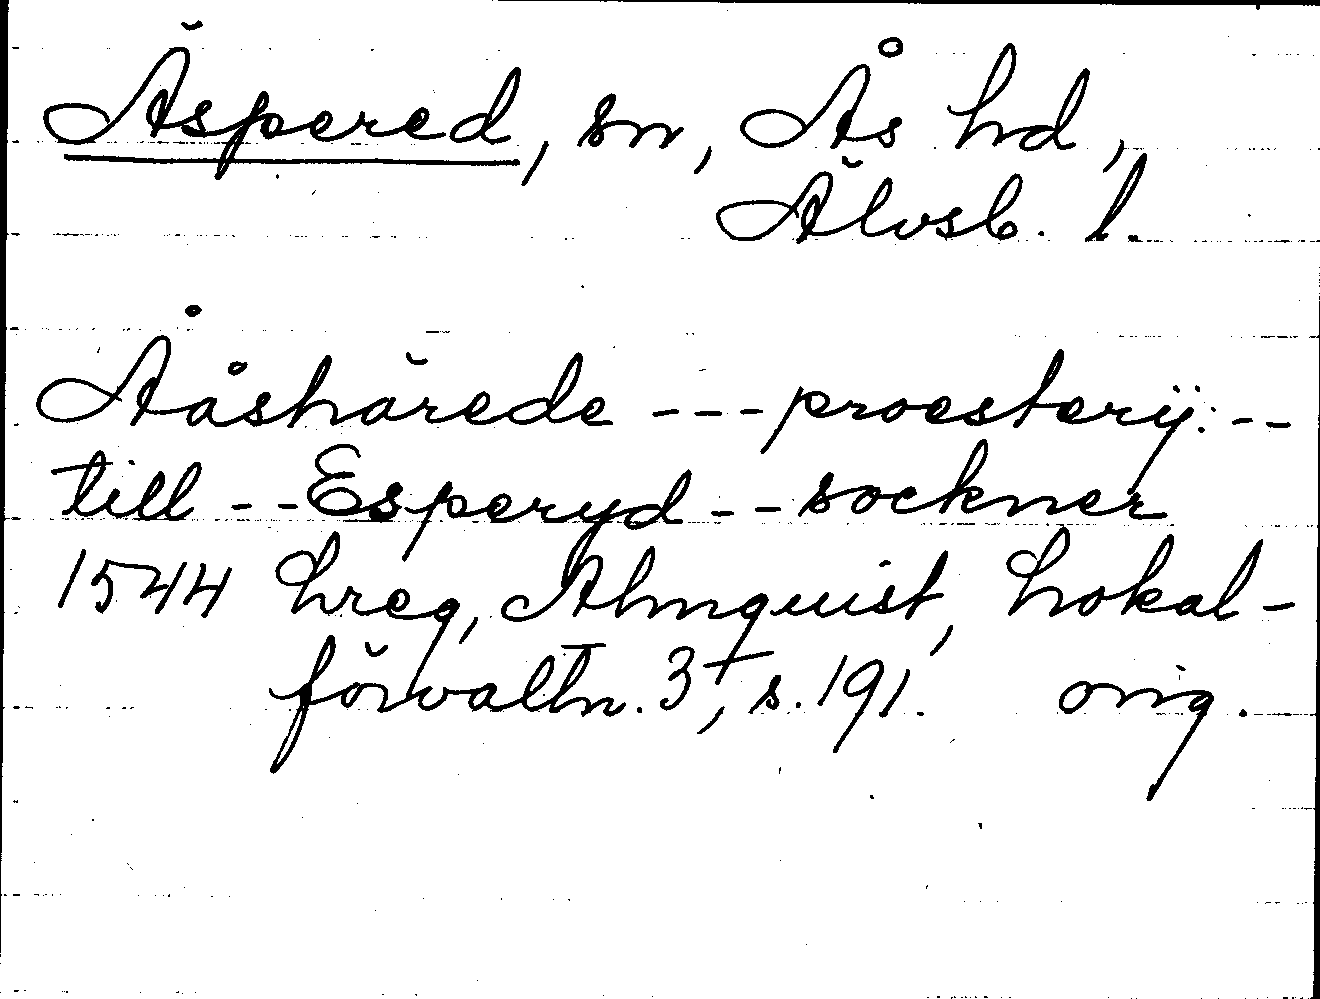 Äspered, sn, Ås hd,
Älvsb. l.
Ååshärede --- proesterij: --
till -- Esperyd -- sockner
1544 Lreg, Almquist, Lokal-
förvaltn. 3⁺, s. 191. orig.